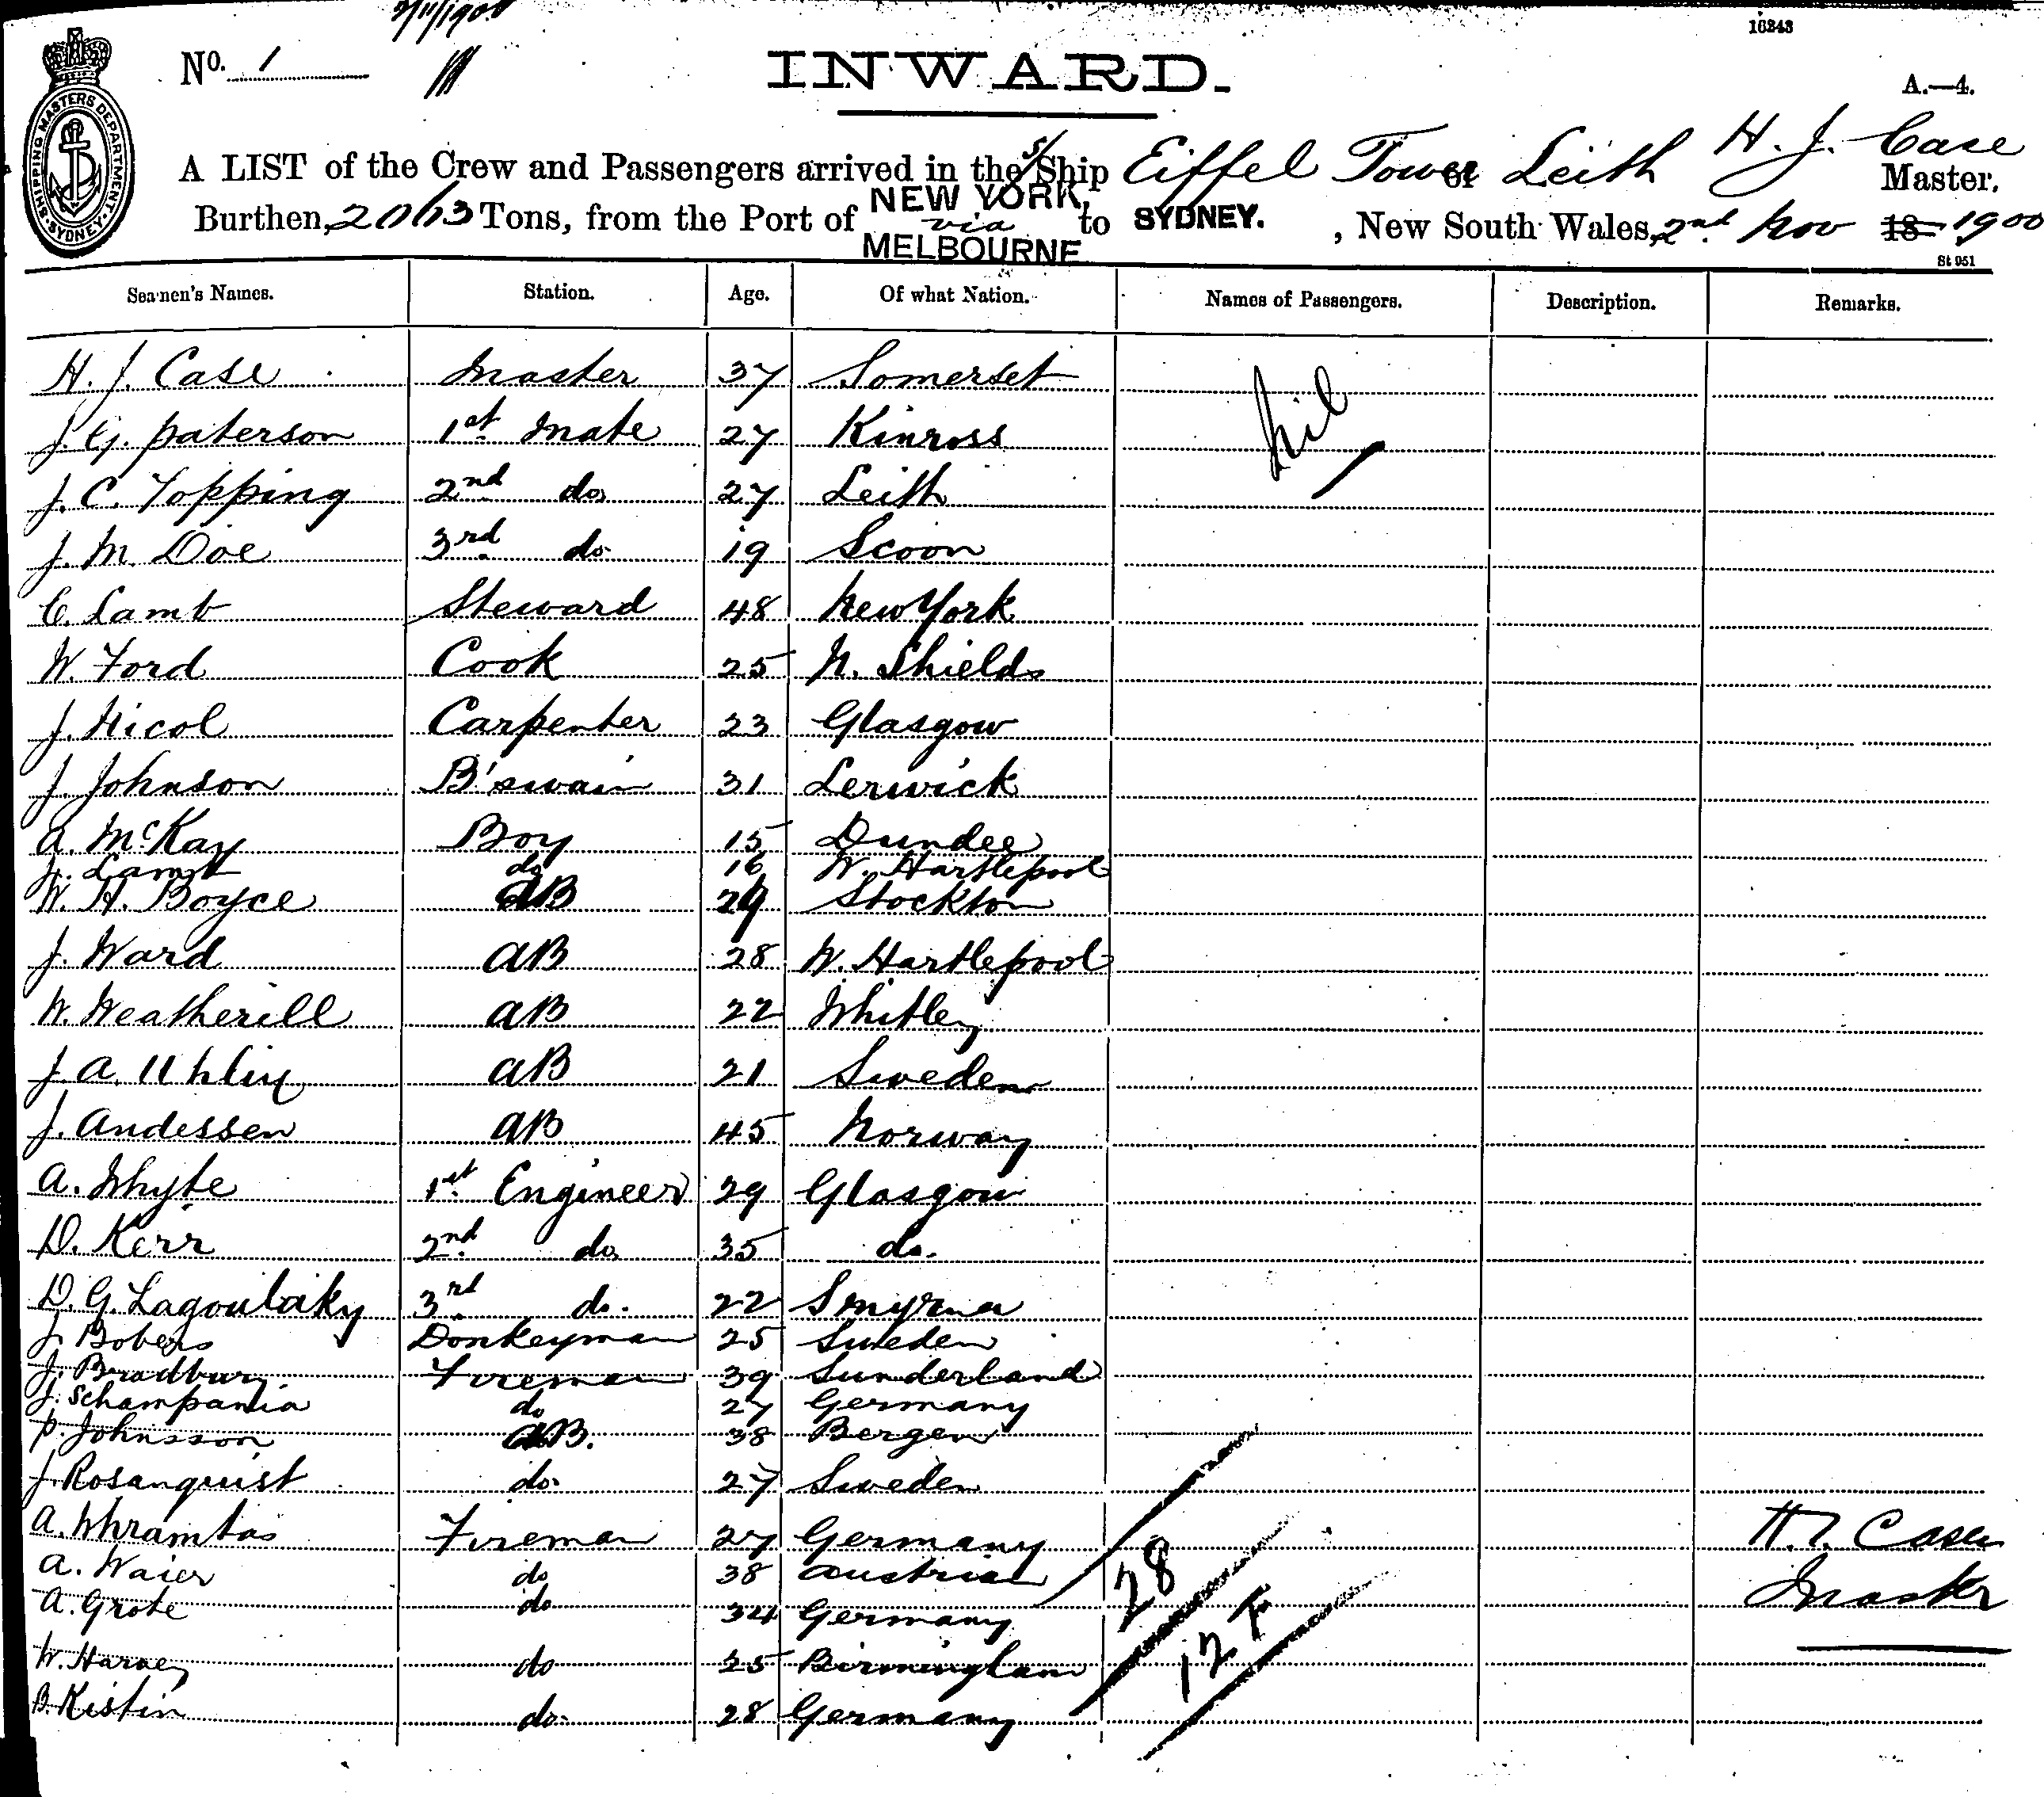 2/11/1900
16343
No. 1
INWARD.
A.—4.
SHIPPING MASTERS DEPARTMENT. SYDNEY.
A LIST of the Crew and Passengers arrived in the S/Ship Eiffel Tower of Leith H. J. Case Master.
Burthen, 2063 Tons, from the Port of NEW YORK, via MELBOURNE to SYDNEY. , New South Wales, 2nd Nov 18 1900
St 951
Seamen's Names. Station. Age. Of what Nation. Names of Passengers. Description. Remarks.
H. J. Case Master 37 Somerset Nil
J. G. Paterson 1st Mate 27 Kinross
J. C. Topping 2nd do 27 Leith
J. M. Doe 3rd do 19 Scoon
C. Lamb Steward 48 New York
W. Ford Cook 25 N. Shields
J. Nicol Carpenter 23 Glasgow
J. Johnson B'swain 31 Lerwick
A. McKay Boy 15 Dundee
J. Lamb do 16 W. Hartlepool
W. H. Boyce AB 29 Stockton
J. Ward AB 28 W. Hartlepool
W. Weatherill AB 22 Whitley
J. A. Uhlin AB 21 Sweden
J. Andessen AB 45 Norway
A. Whyte 1st Engineer 29 Glasgow
D. Kerr 2nd do 35 do.
D. G. Lagoulaky 3rd do. 22 Smyrna
J. Bobers Donkeyman 25 Sweden
J. Bradbury Fireman 39 Sunderland
J. Schampania do 27 Germany
P. Johnsson AB. 38 Bergen
J. Rosanquist do. 27 Sweden
A. Whramtas Fireman 27 Germany H. J. Case
A. Waier do 38 Austrian 28 Master
A. Grote do 34 Germany
W. Harvey do 25 Birmingham 12 F
B. Kistin do. 28 Germany